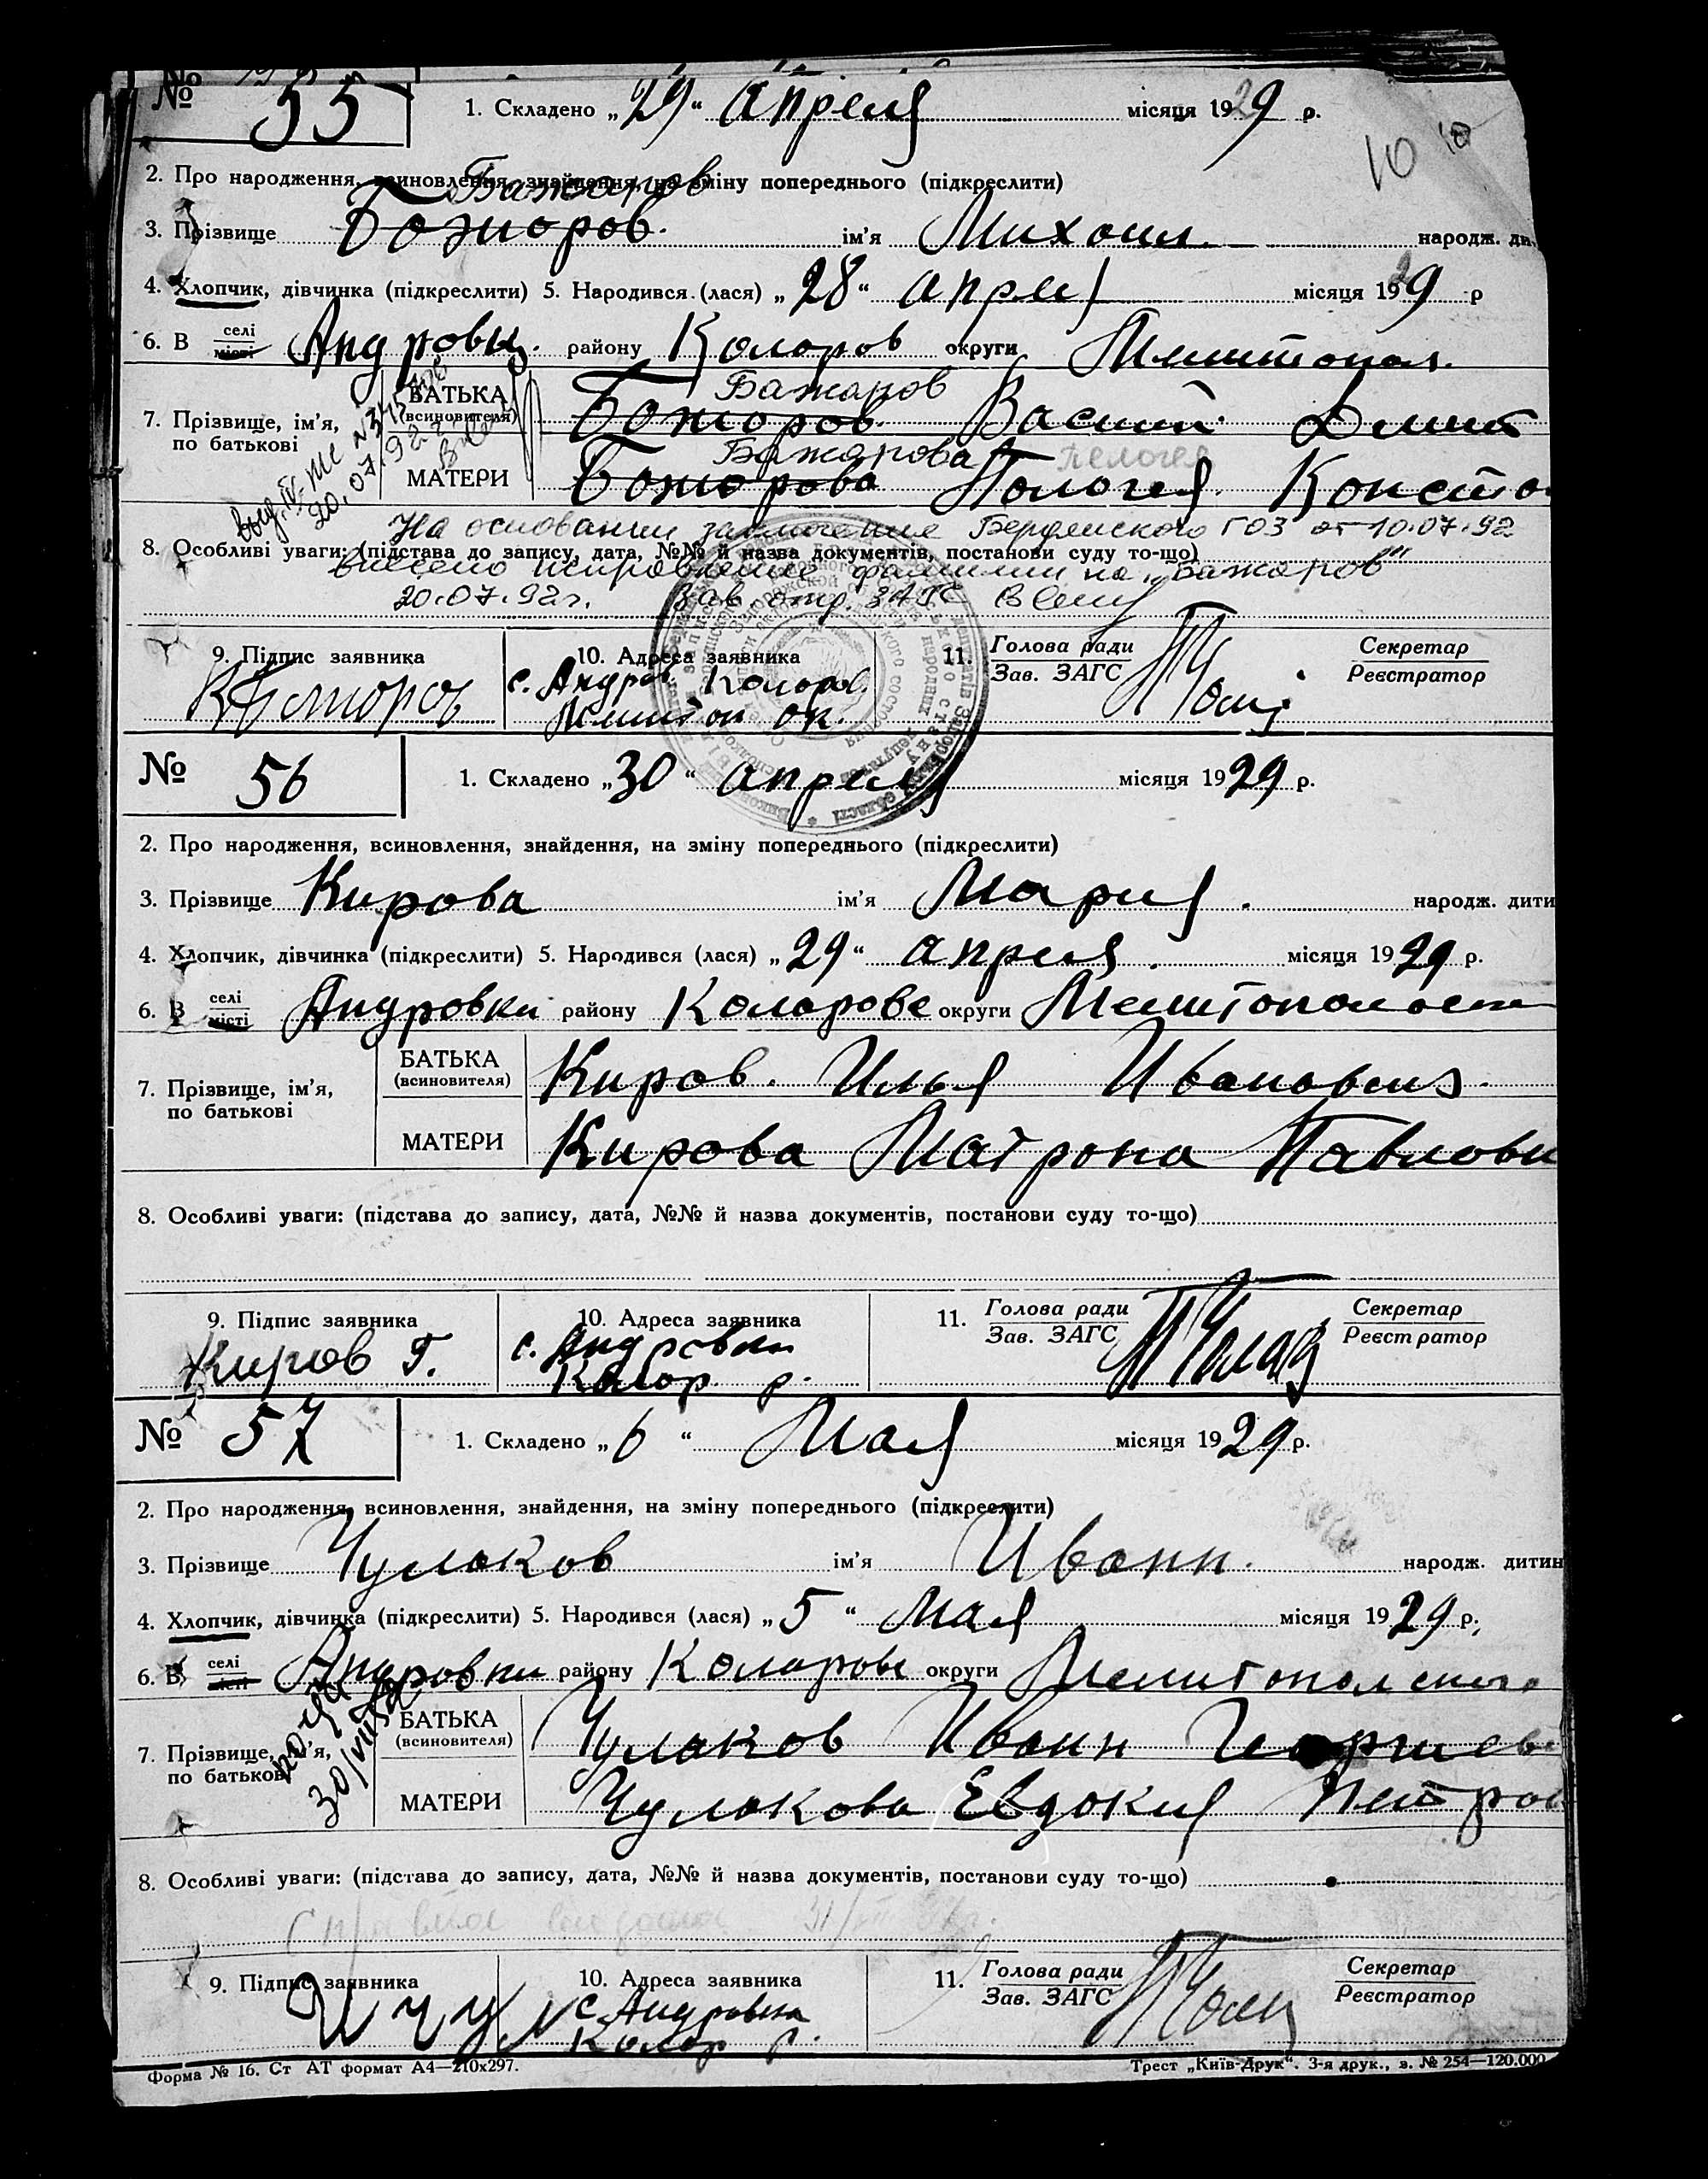 № 55
1. Складено „29“ апреля місяця 1929 р.
10
2. Про народження, всиновлення, знайдення, на зміну попереднього (підкреслити)
Бажаров
3. Прізвище Божоров. ім'я Михоил народж. ди
4. Хлопчик, дівчинка (підкреслити) 5. Народився (лася) „28“ апрел місяця 1929 р
6. В селі місті Андровц. району Колоров округи Мелитопол.
Бажаров
7. Прізвище, ім'я, по батькові БАТЬКА (всиновителя) Божоров Василий Дмит
Бажарова Пелогея
МАТЕРИ Божорова Пологея Консто
20.07.92
На основании заключение Бердянского ГОЗ от 10.07.92
8. Особливі уваги: (підстава до запису, дата, №№ й назва документів, постанови суду то-що)
внесено исправление фамилии на „Бажаров"
20.07.92г. Зав. отд. ЗАГС
9. Підпис заявника 10. Адреса заявника 11. Голова ради Зав. ЗАГС Секретар Реєстратор
с. Андров. Колоров.
Мелитоп ок.
№ 56
1. Складено „30“ апреля місяця 1929 р.
2. Про народження, всиновлення, знайдення, на зміну попереднього (підкреслити)
3. Прізвище Кирова ім'я Мария. народж. дити
4. Хлопчик, дівчинка (підкреслити) 5. Народився (лася) „29“ апреля місяця 1929 р.
6. В селі місті Андровки району Коларове округи Мелитопол
7. Прізвище, ім'я, по батькові БАТЬКА (всиновителя) Киров. Илья Иванович.
МАТЕРИ Кирова Матрона Павловн
8. Особливі уваги: (підстава до запису, дата, №№ й назва документів, постанови суду то-що)
9. Підпис заявника 10. Адреса заявника 11. Голова ради Зав. ЗАГС Секретар Реєстратор
Киров Г. с. Андровки
Колор р.
№ 57
1. Складено „6“ Мая місяця 1929 р.
2. Про народження, всиновлення, знайдення, на зміну попереднього (підкреслити)
3. Прізвище Чулаков ім'я Иванн. народж. дитин
4. Хлопчик, дівчинка (підкреслити) 5. Народився (лася) „5“ Мая місяця 1929 р.
6. В селі місті Андровки району Коларове округи Мелитополского
7. Прізвище, ім'я, по батькові БАТЬКА (всиновителя) Чулаков Иванн Георгиев
МАТЕРИ Чулакова Евдокия Петров
8. Особливі уваги: (підстава до запису, дата, №№ й назва документів, постанови суду то-що)
Справка выдана
9. Підпис заявника 10. Адреса заявника 11. Голова ради Зав. ЗАГС Секретар Реєстратор
И Чул с Андровка
Колор р.
Форма № 16. Ст АТ формат А4—210х297. Трест „Київ-Друк“. 3-я друк., з. № 254—120.000